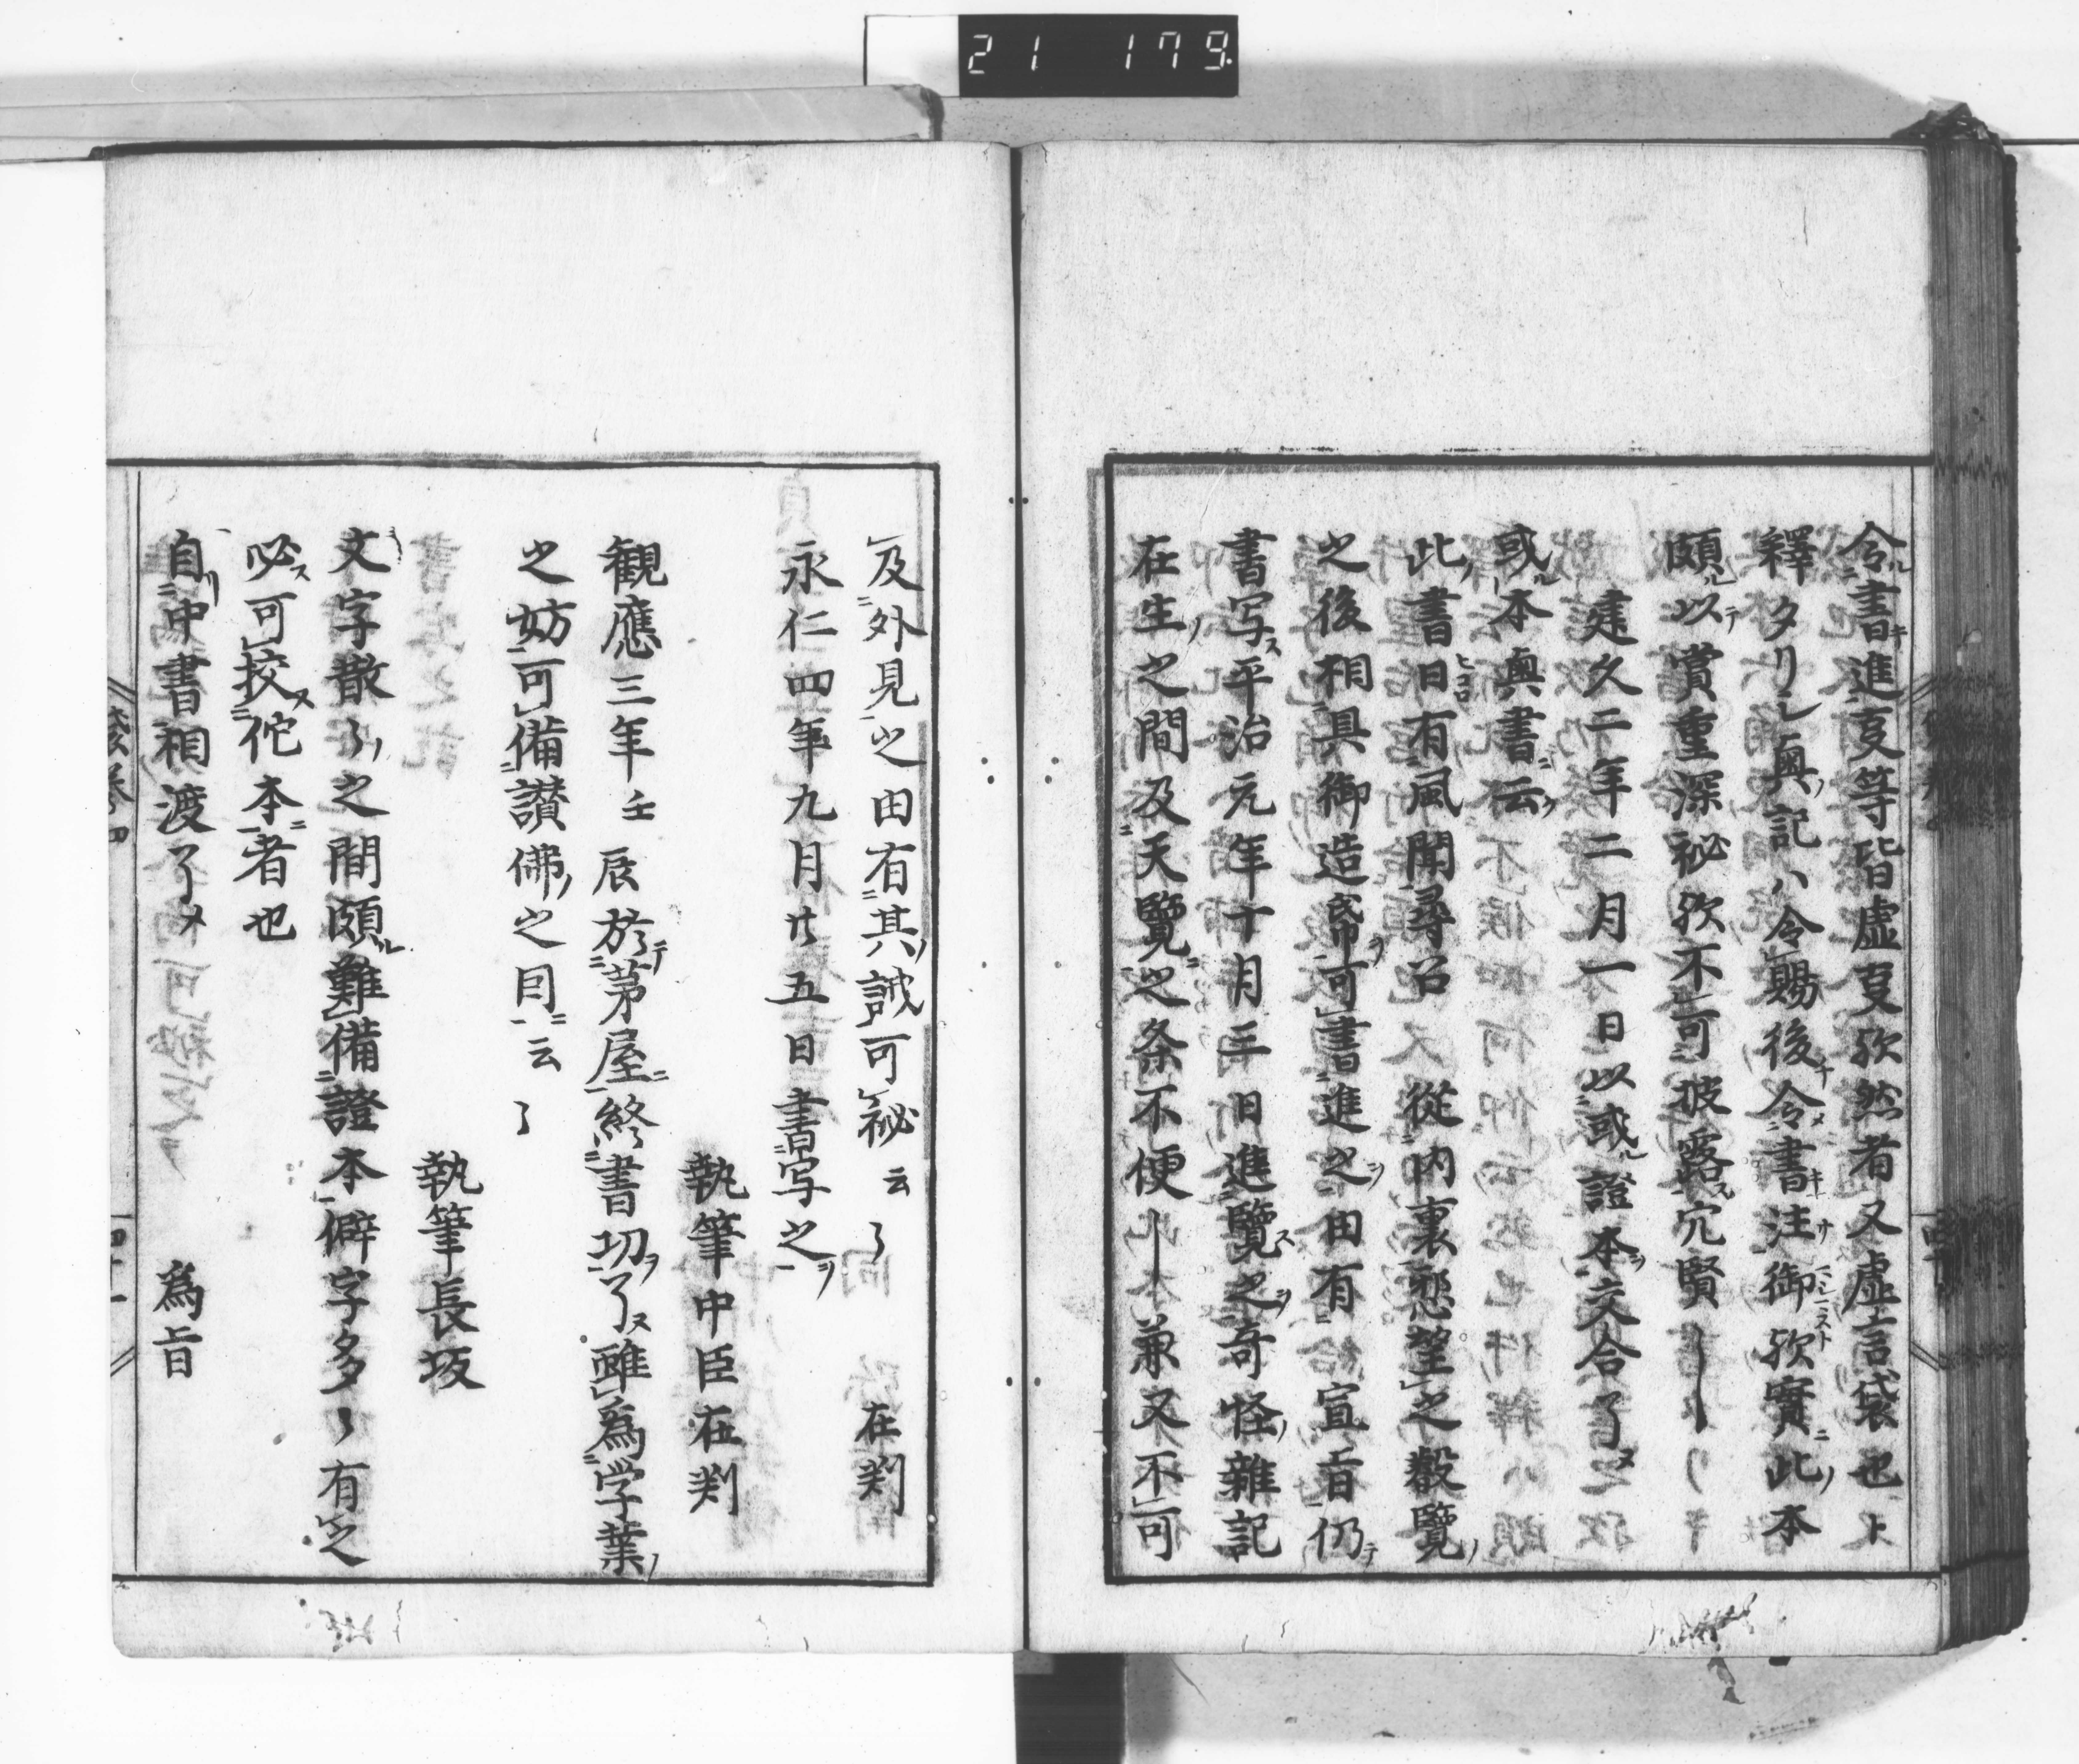 21 179
令書進㕝等皆虚㕝欤然者又虚言袋也上
釋タリシ奥記ハ令賜後令書注御欤實此本
頗以賞重深祕欤不可披露穴賢〱
建久二年二月一日以或證本交合了
或本奥書云
此書日有風聞尋召 従内裏懇望之叡覧
之後相具御造帋可書進之由有 宣旨仍
書写平治元年十月三日進覧之奇怪雜記
在生之間及天覧之条不便〱兼又不可
及外見之由有其誡可祕云々 在判
永仁四年九月廿五日書写之
執筆中臣在判
観應三年壬辰於茅屋終書切了雖爲学業
之妨可備讃佛之因云々
執筆長坂
文字散々之間頗難備證本僻字多々有之
必可挍佗本者也
自中書相渡了 爲旨